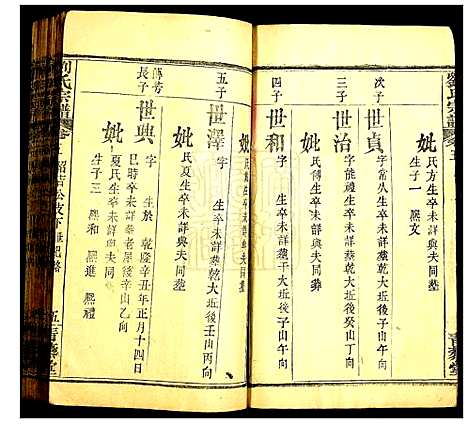 劉氏宗譜
妣氏方生卒未詳與夫同塟
生子一 熙文
次子
世貞
字當久生卒未詳塟乾大坵後子山午向
三子
世治
字能禮生卒未詳塟乾大坵後癸山丁向
妣
氏傅生卒未詳與夫同塟
四子
世和
字 生卒未詳塟干大坵後子山午向
妣
生卒未詳塟夫同塟
五子
世澤
字 生卒未詳塟乾大坵後壬山丙向
妣
氏夏生卒未詳與夫同塟
傳芳
長子
世興
字 生於 乾隆辛丑年正月十四日
巳時卒未詳塟老屋後辛山乙向
妣
夏氏生卒未詳與夫同塟
生子三 熙和 熙進 熙禮
劉氏宗譜
五
青藜堂
青藜堂